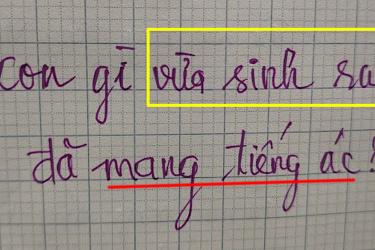 con gì vừa sinh ra
đã mang tiếng ác?